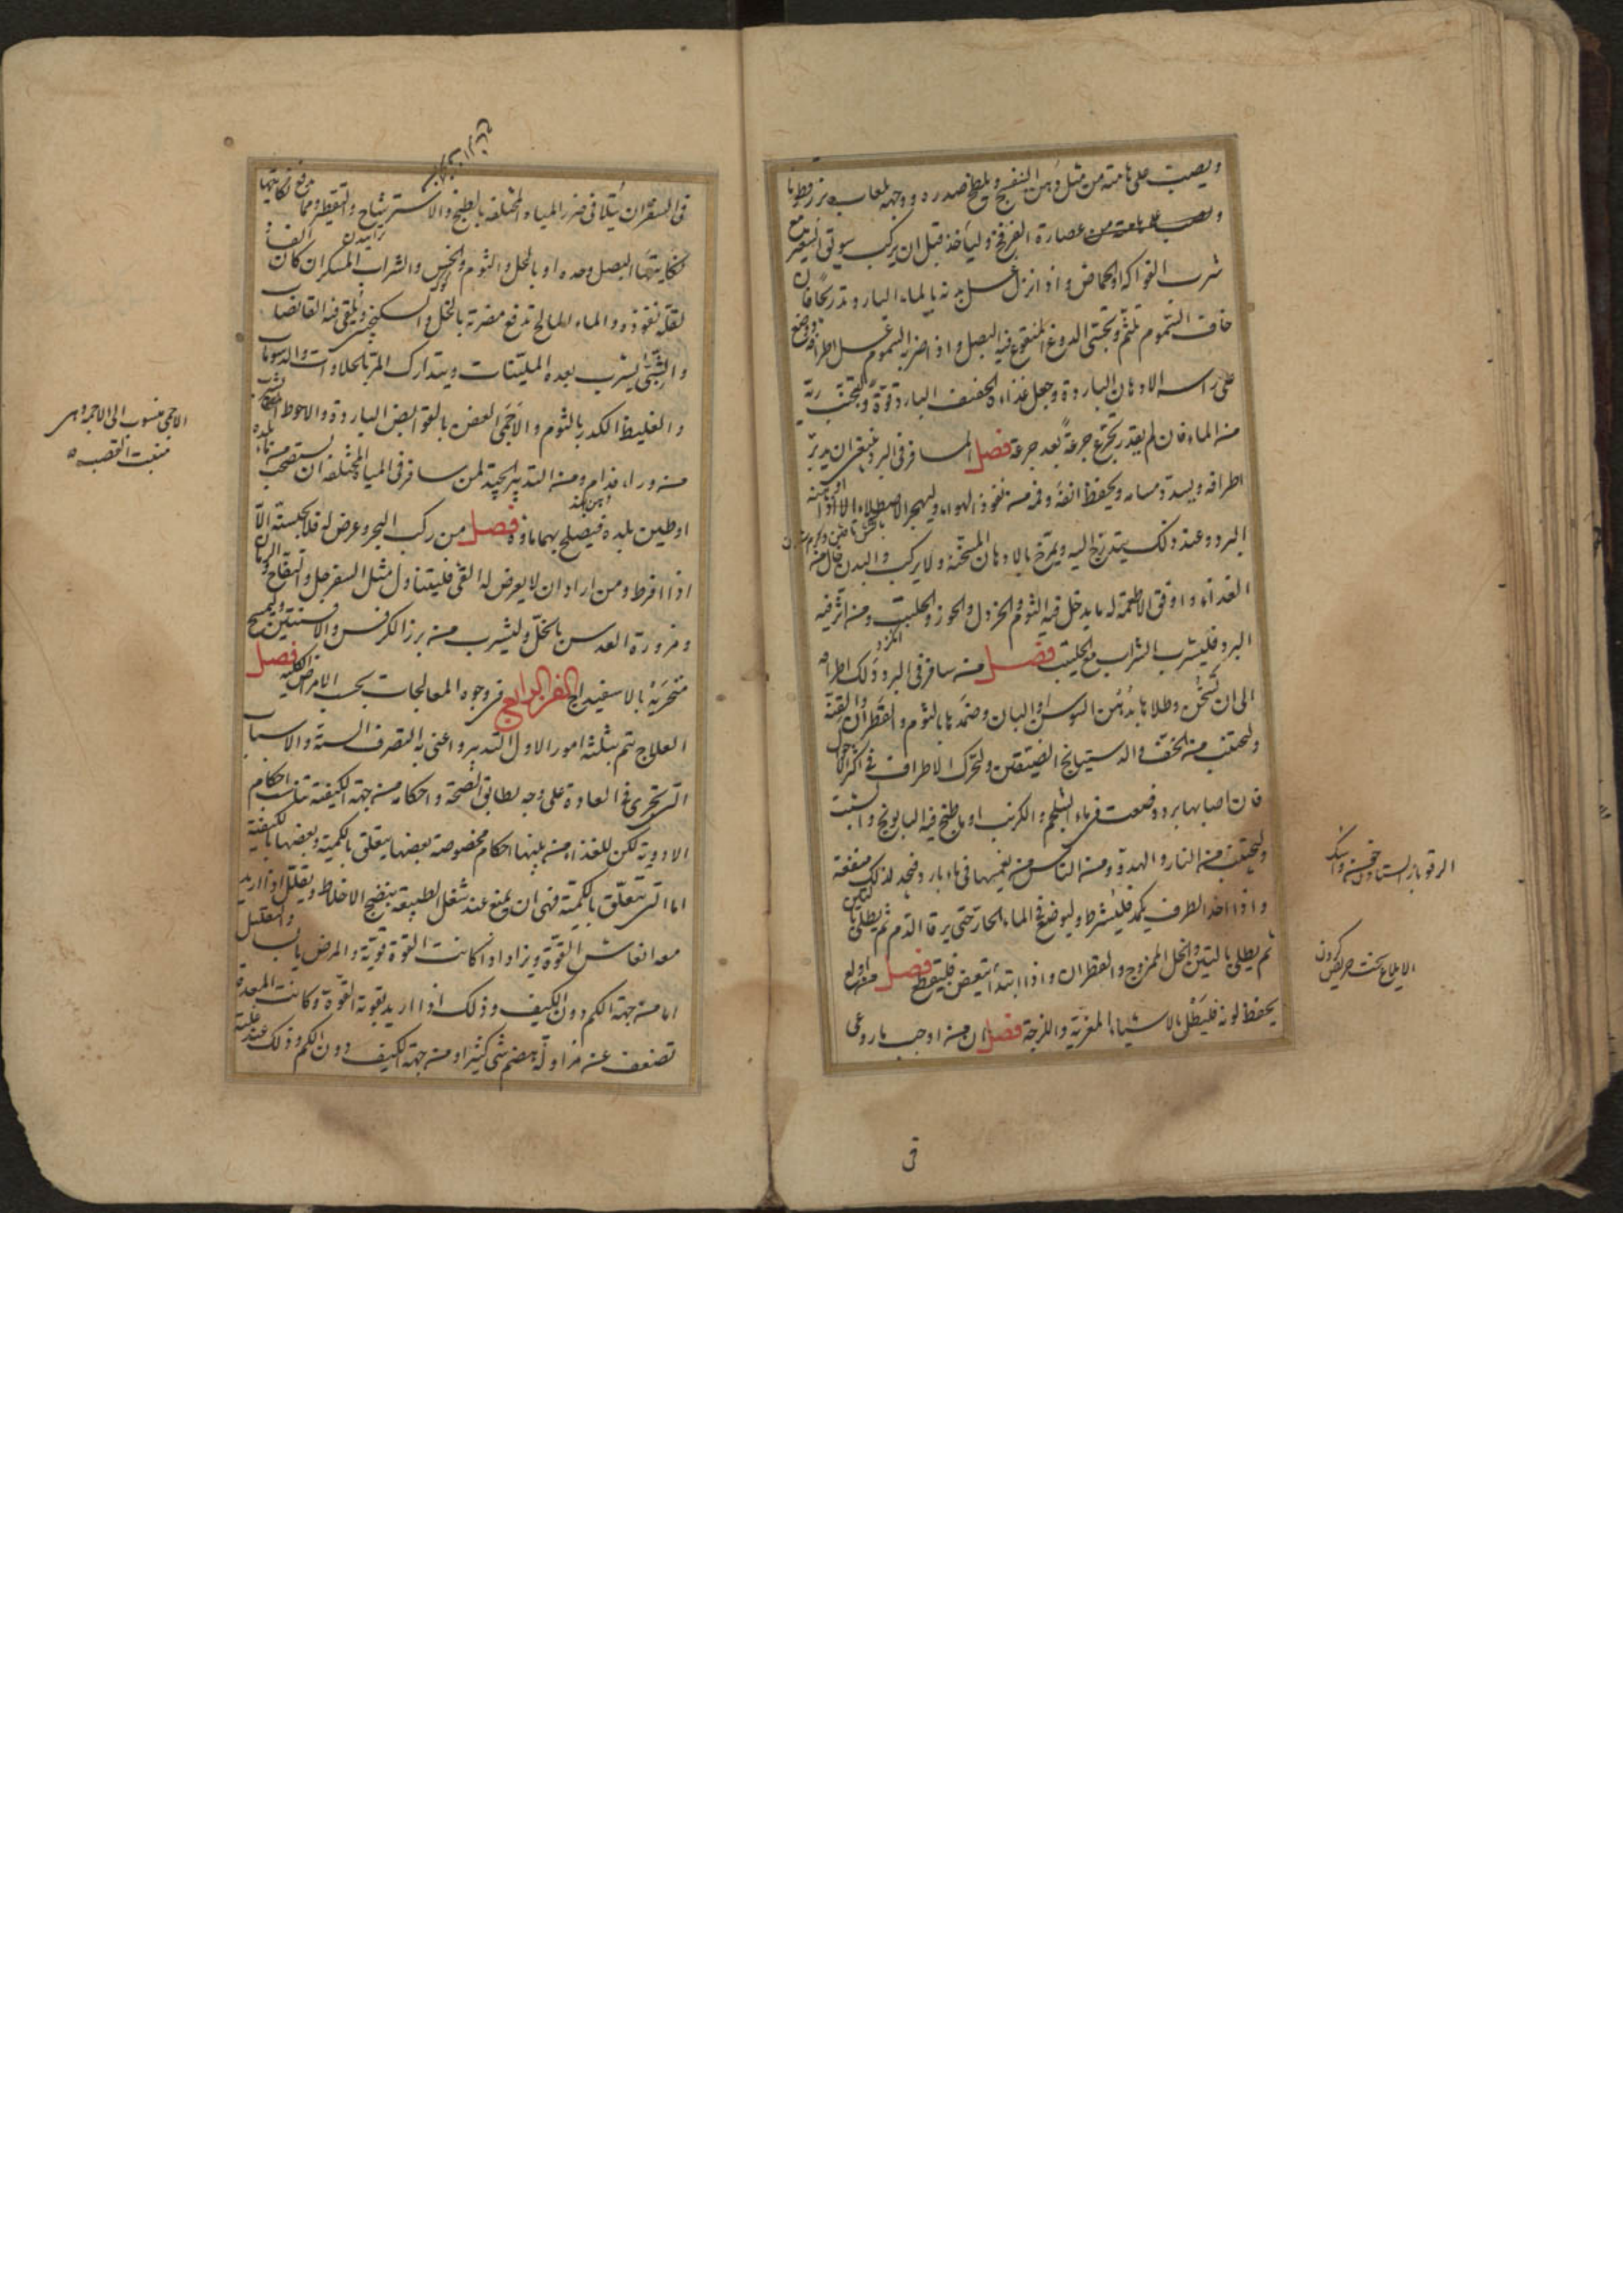 ويصب على هامته من مثل دهن البنفسج ويلطخ صدره ووجهه بلعاب بزرقطونا
عصارة الفرفخ وليأخذ قبل ان يركب سويق الشعير مع
شرب الفواكه او الحماض واذا نزل غسل بدنه بالماء البارد تدريجا فان
خاف السموم تلثم وتحسى الدوغ المنقوع فيه البصل واذا ضربه السموم غسل اطرافه ووضع
على راسه الادهان الباردة وجعل غذاءه الخفيف البارد قوة ويجتنب ريه
من الماء فان لم يقدر تجرع جرعة بعد جرعة فصل المسافر فى البرد ينبغى ان يدبر
اطرافه ويسد مسامه ويحفظ انفه وفمه من نفوذ الهواء وليهجر الاصطلاء الا اذا
البرد وعند ذلك يتدرج اليه ويمرخ بالادهان المسخنة ولا يركب والبدن خال من
الغذاء واوفق الاطعمة له ما يدخل فيه الثوم والخردل والجوز والحلتيت ومن اثر فيه
البرد فليشرب الشراب مع الحلتيت فصل من سافر فى البرد دلك اطرافه
الى ان تسخن وطلاها بدهن السوسن او البان وضمدها بالثوم والقطران والقنة
وليجتنب من الخف والدستبانج الضيقتين وليحرك الاطراف فى اكثر الاحوال
فان اصابها برد وضعت فى ماء الشلجم والكرنب او ما طبخ فيه البابونج والشبت
وليجتنب من النار والهدو ومن الناس من يغمسها فى ماء بارد فيجد لذلك منفعة
واذا اخذ الطرف يكمد فليشرط وليوضع فى الماء الحار حتى يرقا الدم ثم يطلى بالطين
ثم يطلى بالتين والخل الممزوج والقطران واذا ابتدأ يتعفن فليقطع فصل من اولع
يحفظ لونه فليطل بالاشياء المغرية واللزجة فصل ان من اوجب ما روعى
الرقو باز ايستادن خون
الايلاع سخت حريص كردن
فى
فى السفر ان يتلافى ضرر المياه المختلفة بالطبخ والاسترشاح والتقطير ومما يدفع نكايتها
نكايتها البصل وحده او بالخل والثوم والخس والشراب المسكر ان كان
لقلة نفوذه والماء المالح تدفع مضرته بالخل والسكنجبين ويلقى فيه القابضات
والشبى يشرب بعده الملينات ويتدارك المر بالحلاوات والدسومات
والغليظ الكدر بالثوم والاجمى العفن بالقوابض الباردة والاحوط الشرب
من وراء فدام ومن التدبير الجيد لمن سافر فى المياه المختلفة ان يستصحب من ماء بلده
او طين بلده فيصلح بهما ماؤه فصل من ركب البحر وعرض له قئ فلا يحبسنه الا
اذا افرط ومن اراد ان لا يعرض له القئ فليتناول مثل السفرجل والتفاح والرمان
ومزورة العدس بالخل وليشرب من بزر الكرفس والافسنتين وليمسح
منخريه بالاسفيداج الفن الرابع فى وجوه المعالجات بحسب الامراض الكلية فصل
العلاج يتم بثلثة امور الاول التدبير واعنى به التصرف فى الستة والاسباب
التى تجرى فى العادة على وجه يطابق الصحة واحكامه من جهة الكيفية تناسب احكام
الادوية لكن للغذاء من بينها احكام مخصوصة بعضها يتعلق بالكمية وبعضها بالكيفية
اما التى تتعلق بالكمية فهى ان يمنع عند شغل الطبيعة بنضج الاخلاط ويقلل اذا اريد
معه انتعاش القوة ويزاد اذا كانت القوة قوية والمرض يابسا والتقليل
اما من جهة الكم دون الكيف وذلك اذا اريد تقوية القوة وكانت المعدة
تضعف عن مزاولة هضم شئ كثير او من جهة الكيف دون الكم وذلك عند غلبة
الاجمى منسوب الى الاجمة وهى
منبت القصب